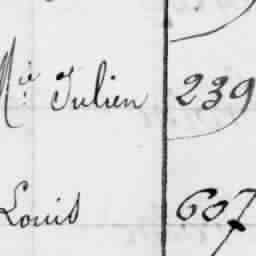 Mie Julien 239
Louis 607